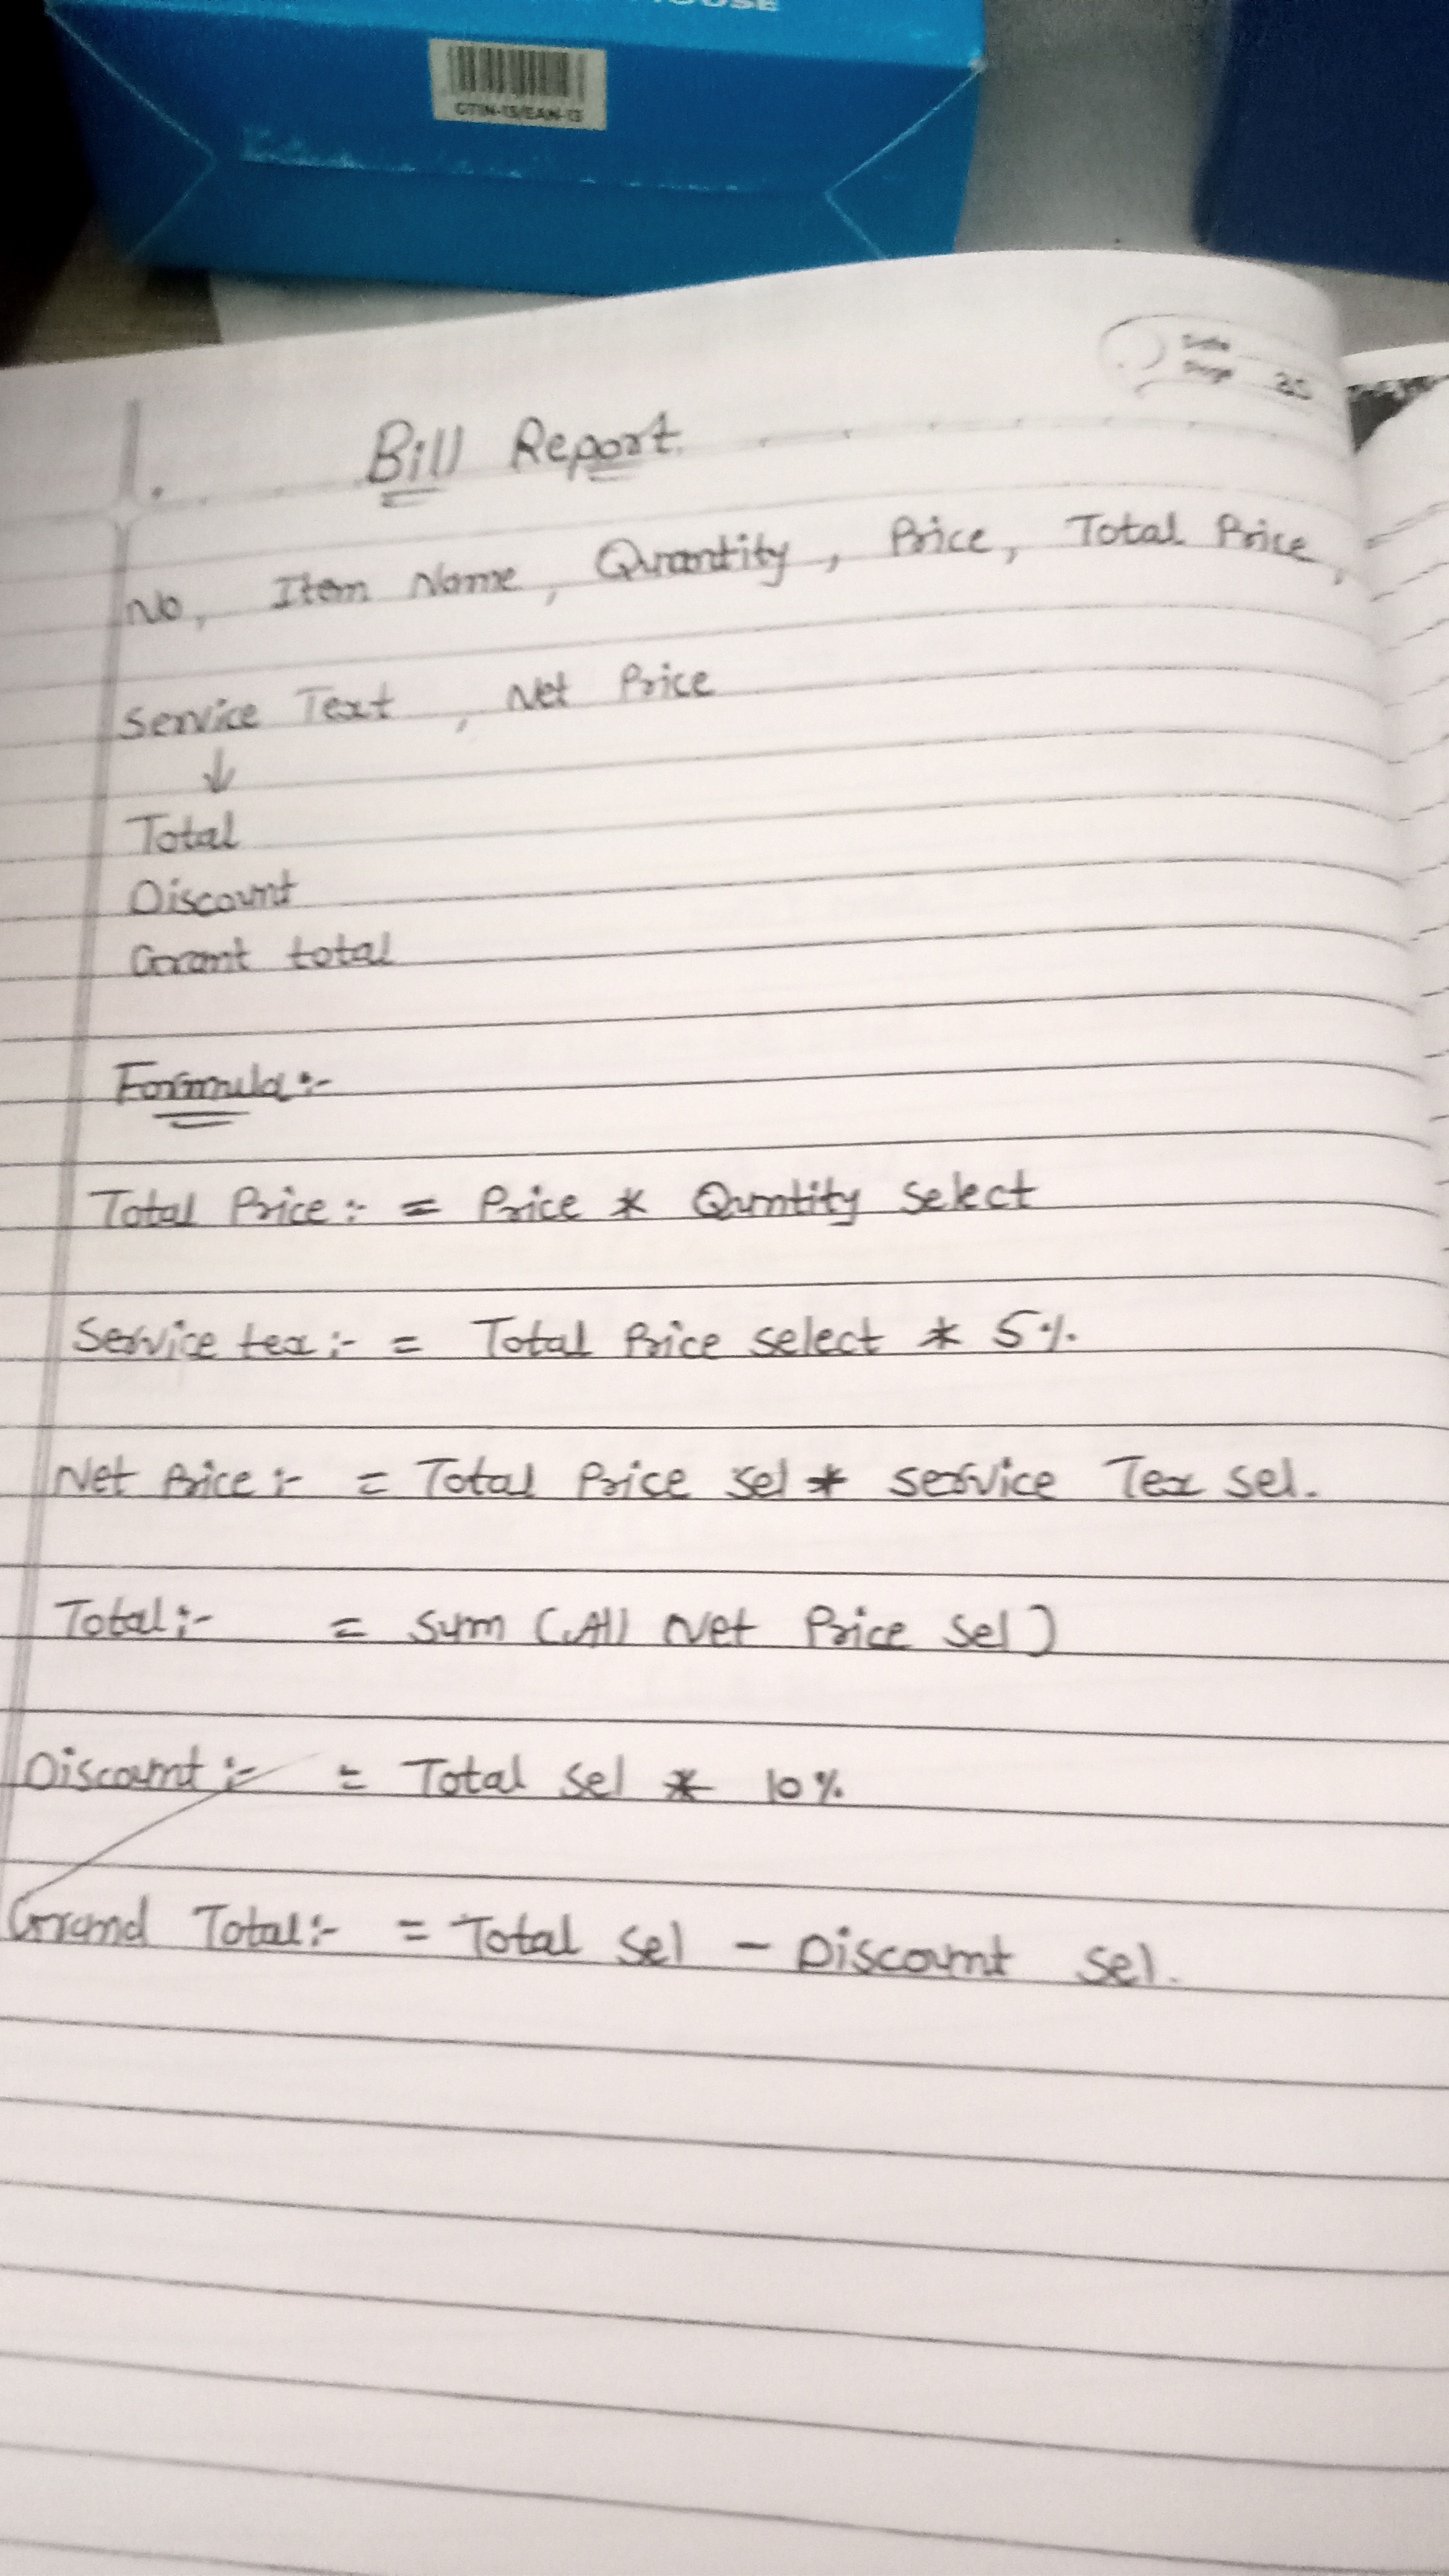 OUSE
GTIN-13/EAN-13
Date
Page 25
Bill Report
No, Item Name, Quantity, Price, Total Price,
Service Text, Net Price
↓
Total
Discount
Grant total
Formula:-
Total Price:- = Price * Quntity select
Service tex:- = Total Price select * 5%
Net Price:- = Total Price sel * service Tex sel.
Total:- = Sum (All Net Price sel)
Discount:- = Total sel * 10%
Grand Total:- = Total sel - Discount sel.